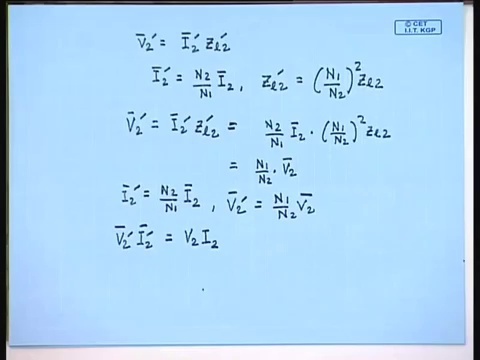 © CET
I.I.T. KGP
V̄₂′ = Ī₂′ Zℓ₂′
Ī₂′ = N₂/N₁ Ī₂ , Zℓ₂′ = (N₁/N₂)² Zℓ₂
V̄₂′ = Ī₂′ Zℓ₂′ = N₂/N₁ Ī₂ · (N₁/N₂)² Zℓ₂
= N₁/N₂ · V̄₂
Ī₂′ = N₂/N₁ Ī₂ , V̄₂′ = N₁/N₂ V̄₂
V̄₂′ Ī₂′ = V₂ I₂